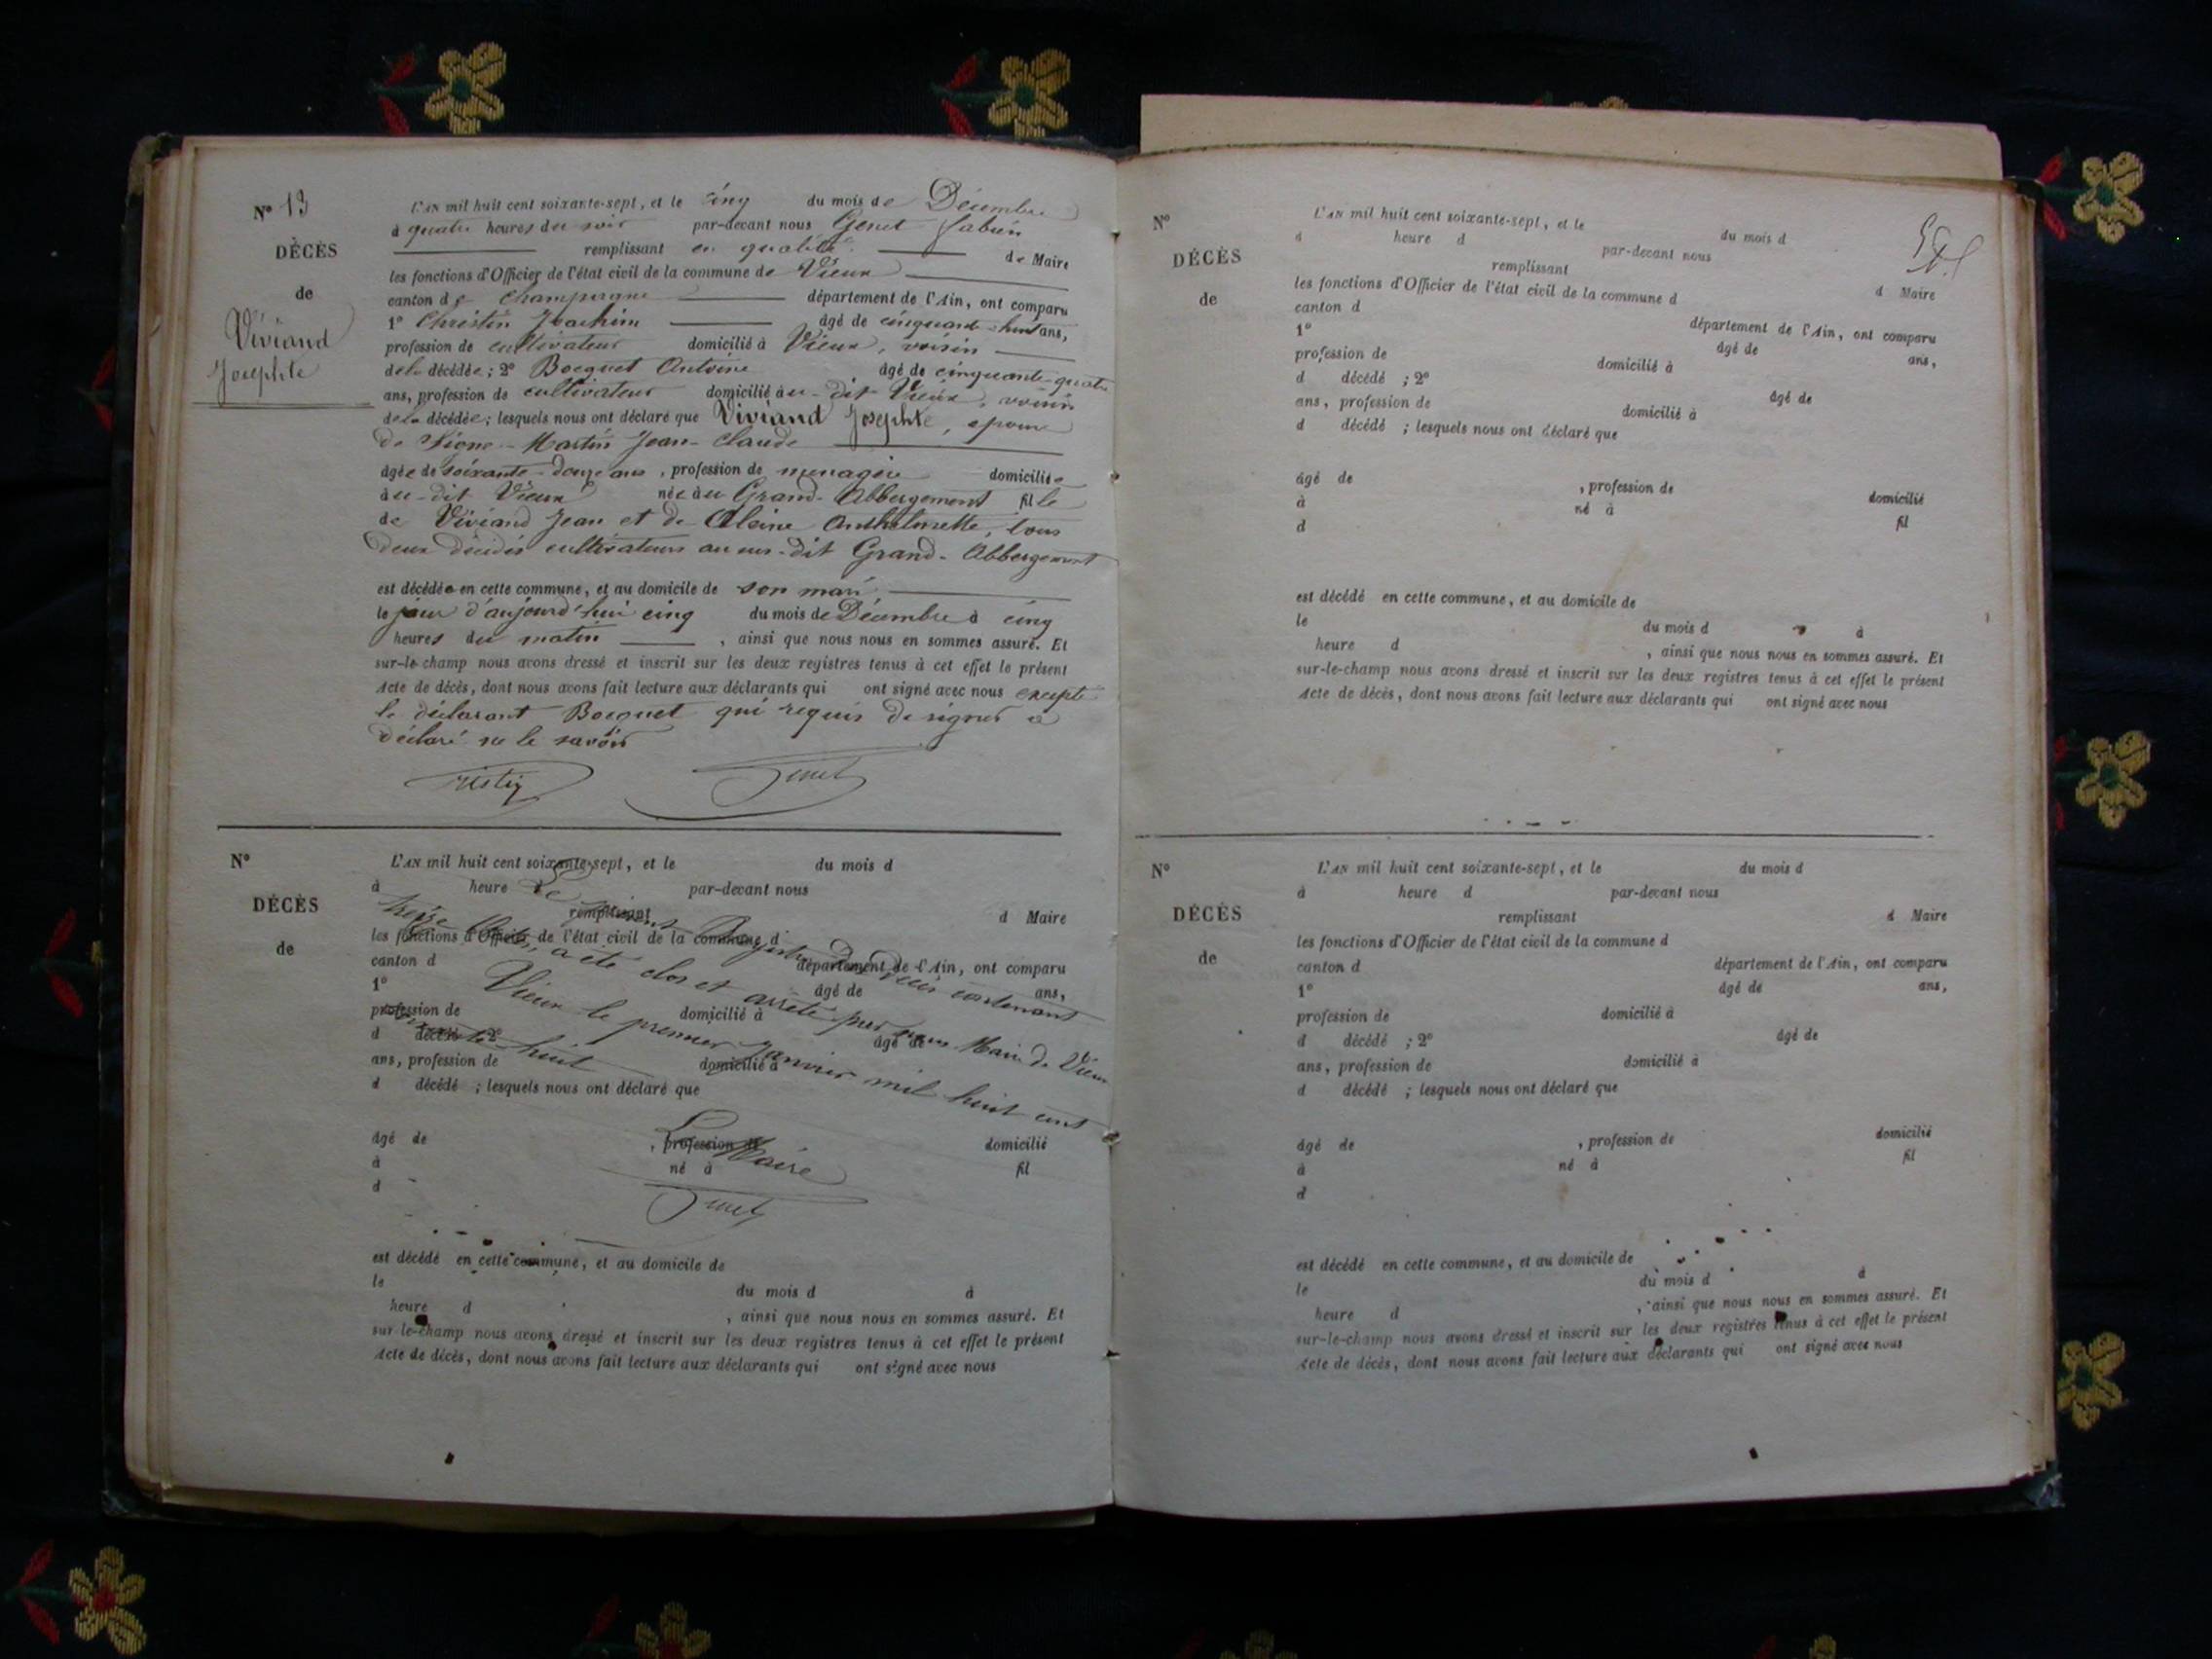 N° 13
DÉCÈS
de
Viviand
Josephte
L'AN mil huit cent soixante-sept, et le cinq du mois de Décembre
à quatre heures du soir par-devant nous Genet Fabien
remplissant en qualité de Maire
les fonctions d'Officier de l'état civil de la commune de Vieux
canton de Champagne département de l'Ain, ont comparu
1° Christin Joachim âgé de cinquante-huit ans,
profession de cultivateur domicilié à Vieux, voisin
de la décédée; 2° Bocquet Antoine âgé de cinquante-quatre
ans, profession de cultivateur domicilié au-dit Vieux, voisin
de la décédée; lesquels nous ont déclaré que Viviand Josephte, épouse
de Vigne-Martin Jean-Claude
âgée de soixante-douze ans, profession de menagère domiciliée
au-dit Vieux née au Grand-Abbergement fille
de Viviand Jean et de Aleine Anthelmette, tous
deux décédés cultivateurs au sus-dit Grand-Abbergement
est décédée en cette commune, et au domicile de son mari
le jour d'aujourd'hui cinq du mois de Décembre à cinq
heures du matin, ainsi que nous nous en sommes assuré. Et
sur-le-champ nous avons dressé et inscrit sur les deux registres tenus à cet effet le présent
Acte de décès, dont nous avons fait lecture aux déclarants qui ont signé avec nous excepté
le déclarant Bocquet qui requis de signer a
déclaré ne le savoir
Genet
N°
DÉCÈS
de
L'AN mil huit cent soixante-sept, et le du mois d
à heure d par-devant nous
remplissant d Maire
les fonctions d'Officier de l'état civil de la commune d
canton d département de l'Ain, ont comparu
1° âgé de ans,
profession de domicilié à
d décédé ; 2° âgé de
ans, profession de domicilié à
d décédé ; lesquels nous ont déclaré que
Le présent Registre des Décès contenant
treize actes, a été clos et arrêté par nous Maire de Vieux
Vieux le premier Janvier mil huit cent
soixante-huit
Le Maire
Genet
âgé de , profession de domicilié
à né à fil
d
est décédé en cette commune, et au domicile de
le du mois d à
heure d , ainsi que nous nous en sommes assuré. Et
sur-le-champ nous avons dressé et inscrit sur les deux registres tenus à cet effet le présent
Acte de décès, dont nous avons fait lecture aux déclarants qui ont signé avec nous
N°
DÉCÈS
de
L'AN mil huit cent soixante-sept, et le du mois d
à heure d par-devant nous
remplissant d Maire
les fonctions d'Officier de l'état civil de la commune d
canton d département de l'Ain, ont comparu
1° âgé de ans,
profession de domicilié à
d décédé ; 2° âgé de
ans, profession de domicilié à
d décédé ; lesquels nous ont déclaré que
âgé de , profession de domicilié
à né à fil
d
est décédé en cette commune, et au domicile de
le du mois d à
heure d , ainsi que nous nous en sommes assuré. Et
sur-le-champ nous avons dressé et inscrit sur les deux registres tenus à cet effet le présent
Acte de décès, dont nous avons fait lecture aux déclarants qui ont signé avec nous
N°
DÉCÈS
de
L'AN mil huit cent soixante-sept, et le du mois d
à heure d par-devant nous
remplissant d Maire
les fonctions d'Officier de l'état civil de la commune d
canton d département de l'Ain, ont comparu
1° âgé de ans,
profession de domicilié à
d décédé ; 2° âgé de
ans, profession de domicilié à
d décédé ; lesquels nous ont déclaré que
âgé de , profession de domicilié
à né à fil
d
est décédé en cette commune, et au domicile de
le du mois d à
heure d , ainsi que nous nous en sommes assuré. Et
sur-le-champ nous avons dressé et inscrit sur les deux registres tenus à cet effet le présent
Acte de décès, dont nous avons fait lecture aux déclarants qui ont signé avec nous